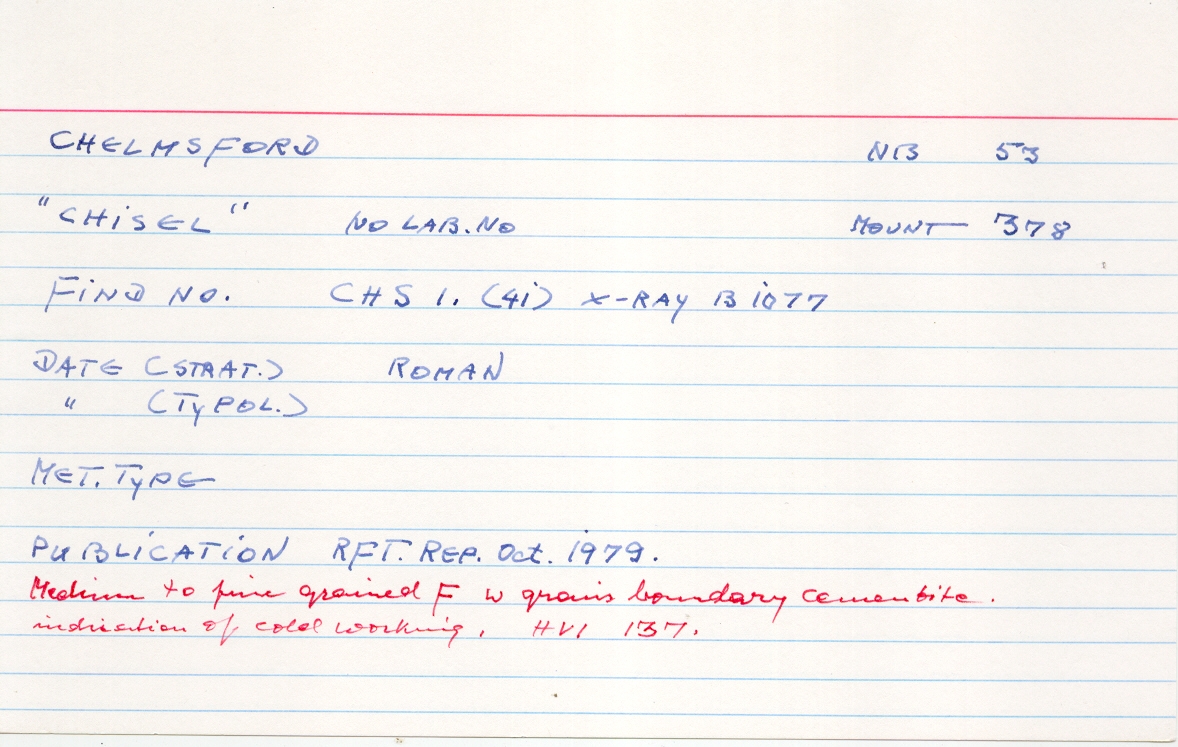 CHELMSFORD NB 53
"CHiSEL" NO LAB. NO MOUNT 378
FiND NO. CHS 1. (4i) X-RAY B 1077
DATE (STRAT.) ROMAN
" (TYPOL.)
MET. TYPE
PUBLiCATiON RFT. REP. Oct. 1979.
Medium to fine grained F w grains boundary cementite.
indication of cold working. HV1 137.